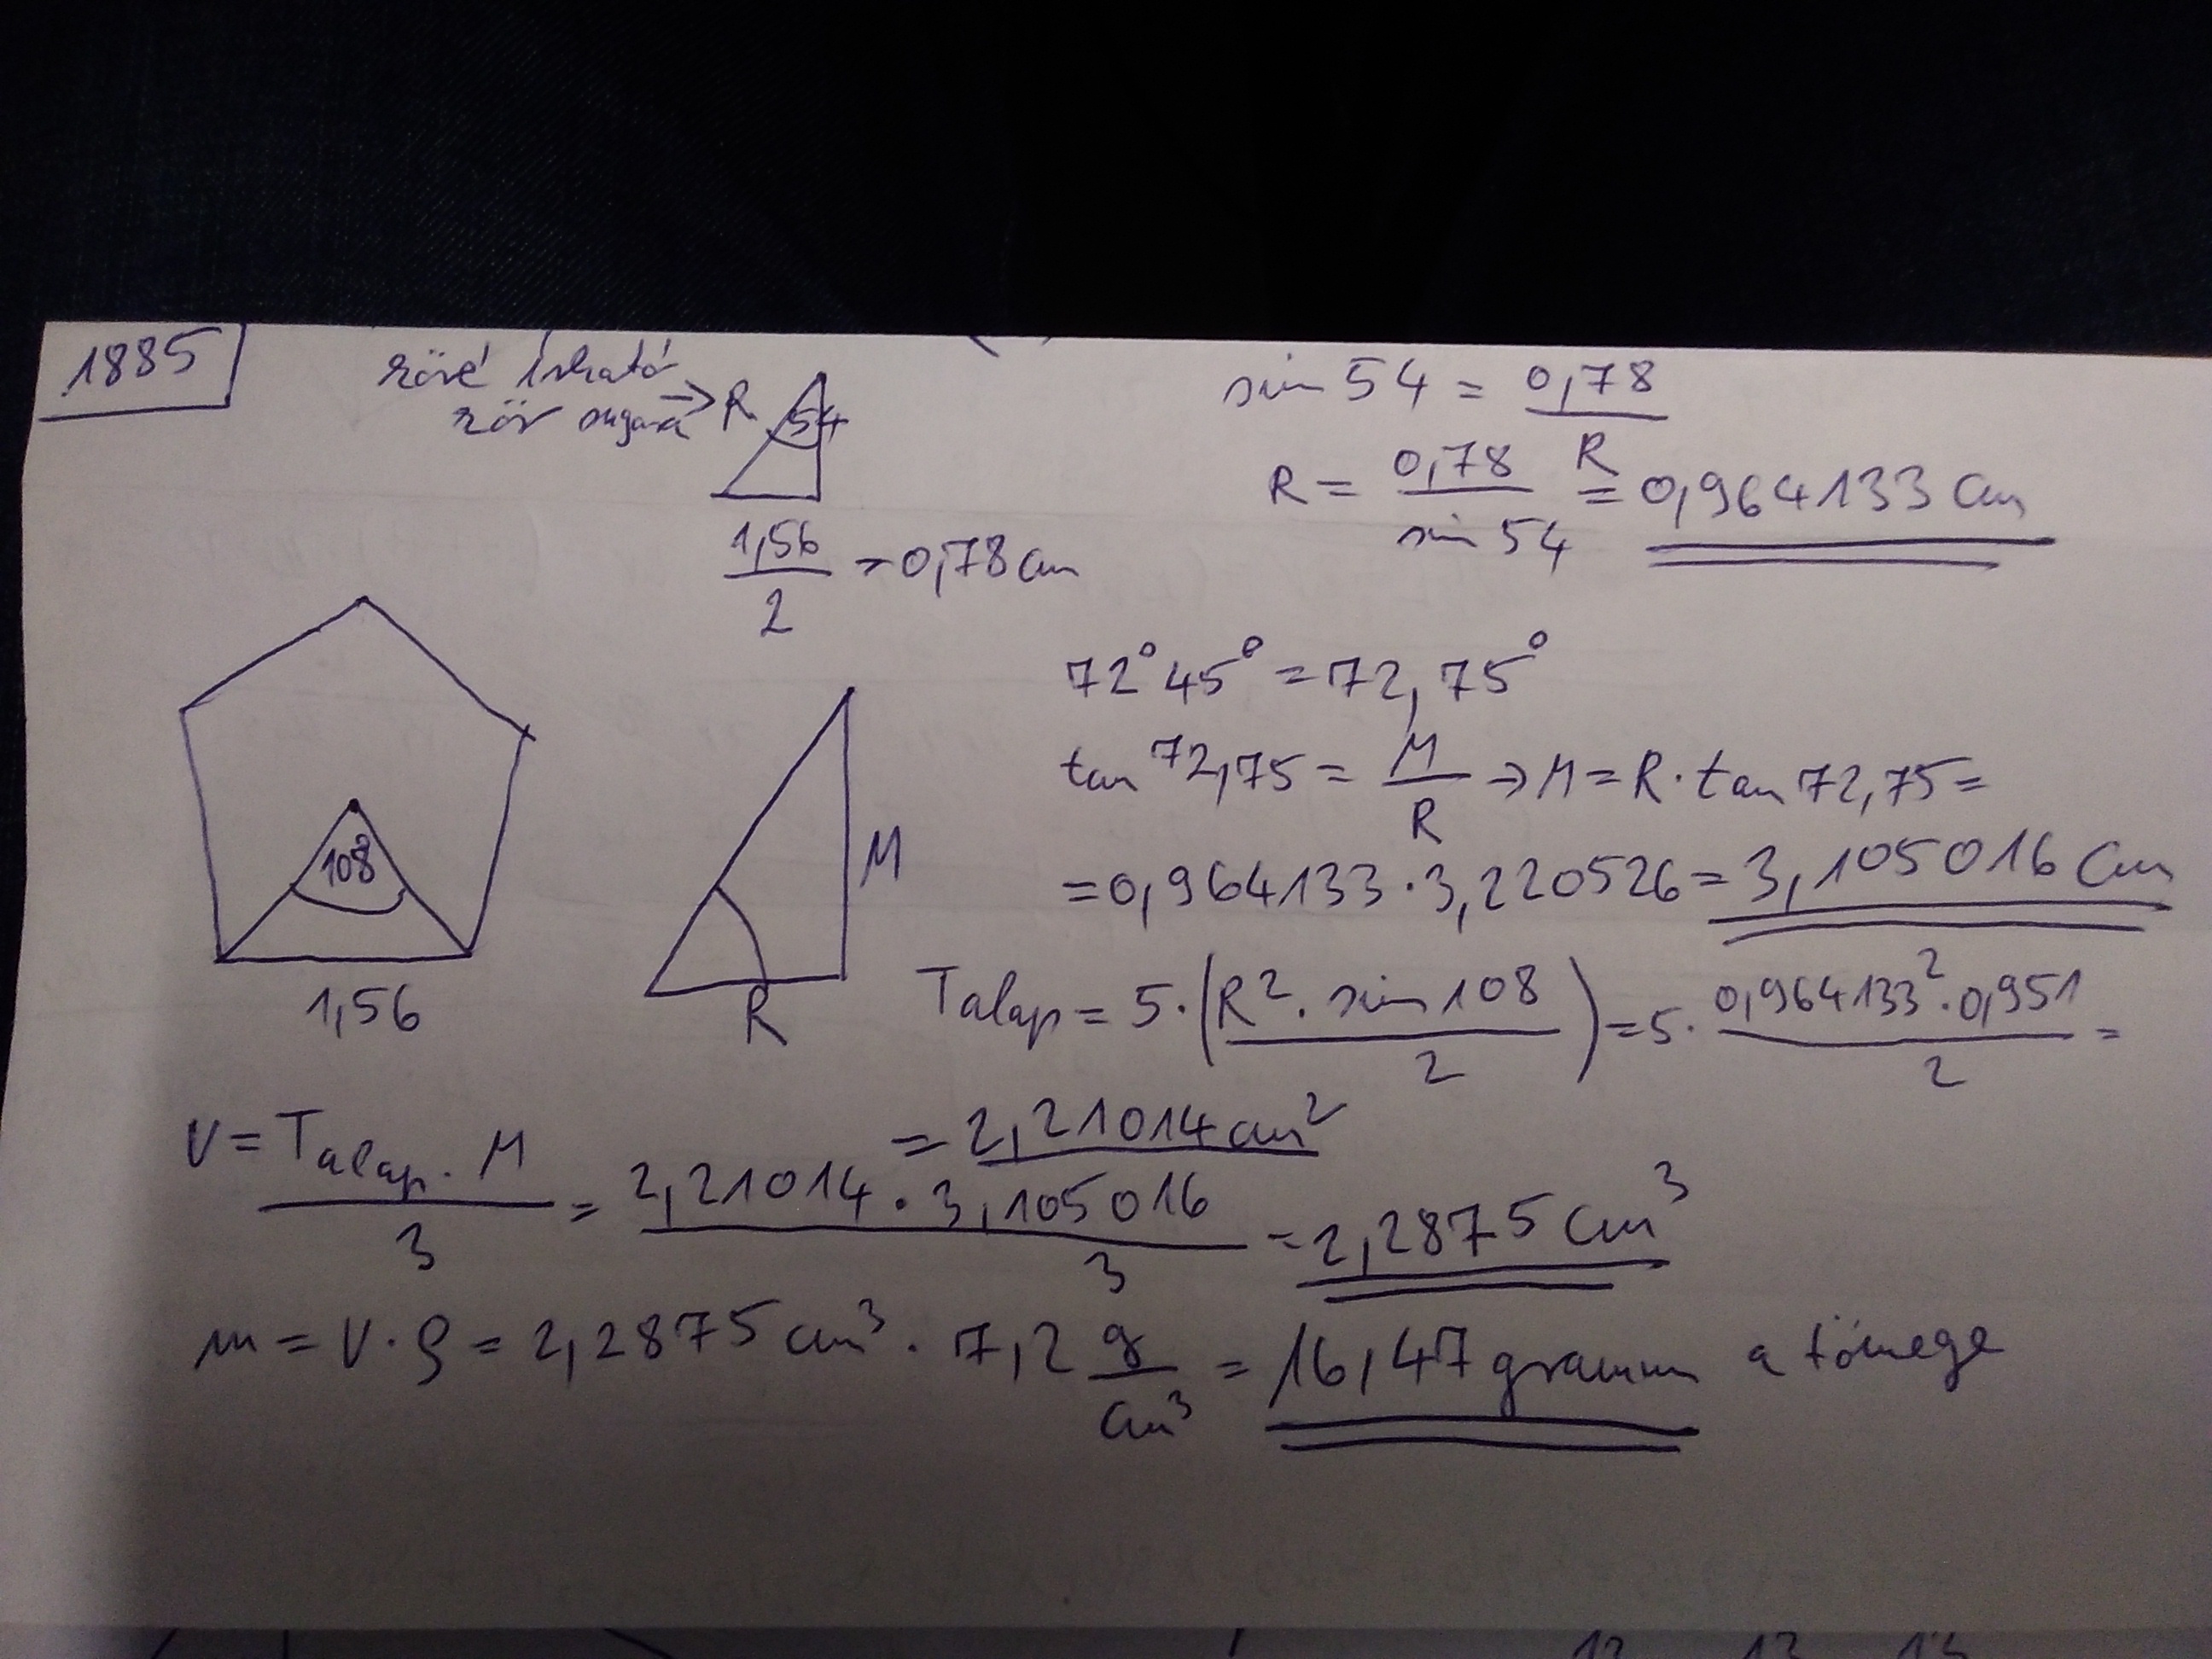 1885
köré írható
kör sugara → R
54
1,56/2 = 0,78 cm
sin 54 = 0,78/R
R = 0,78/sin 54 = 0,964133 cm
108
1,56
M
R
72°45° = 72,75°
tan 72,75 = M/R → M = R · tan 72,75 =
= 0,964133 · 3,220526 = 3,105016 cm
Talap = 5 · (R² · sin 108 / 2) = 5 · 0,964133² · 0,951 / 2 =
= 2,21014 cm²
V = Talap · M / 3 = 2,21014 · 3,105016 / 3 = 2,2875 cm³
m = V · ρ = 2,2875 cm³ · 7,2 g/cm³ = 16,47 gramm a tömege